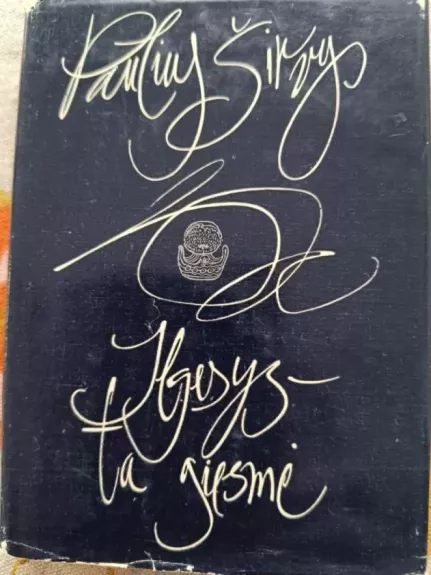 Paulius Širvys
Ilgesys –
ta giesmė